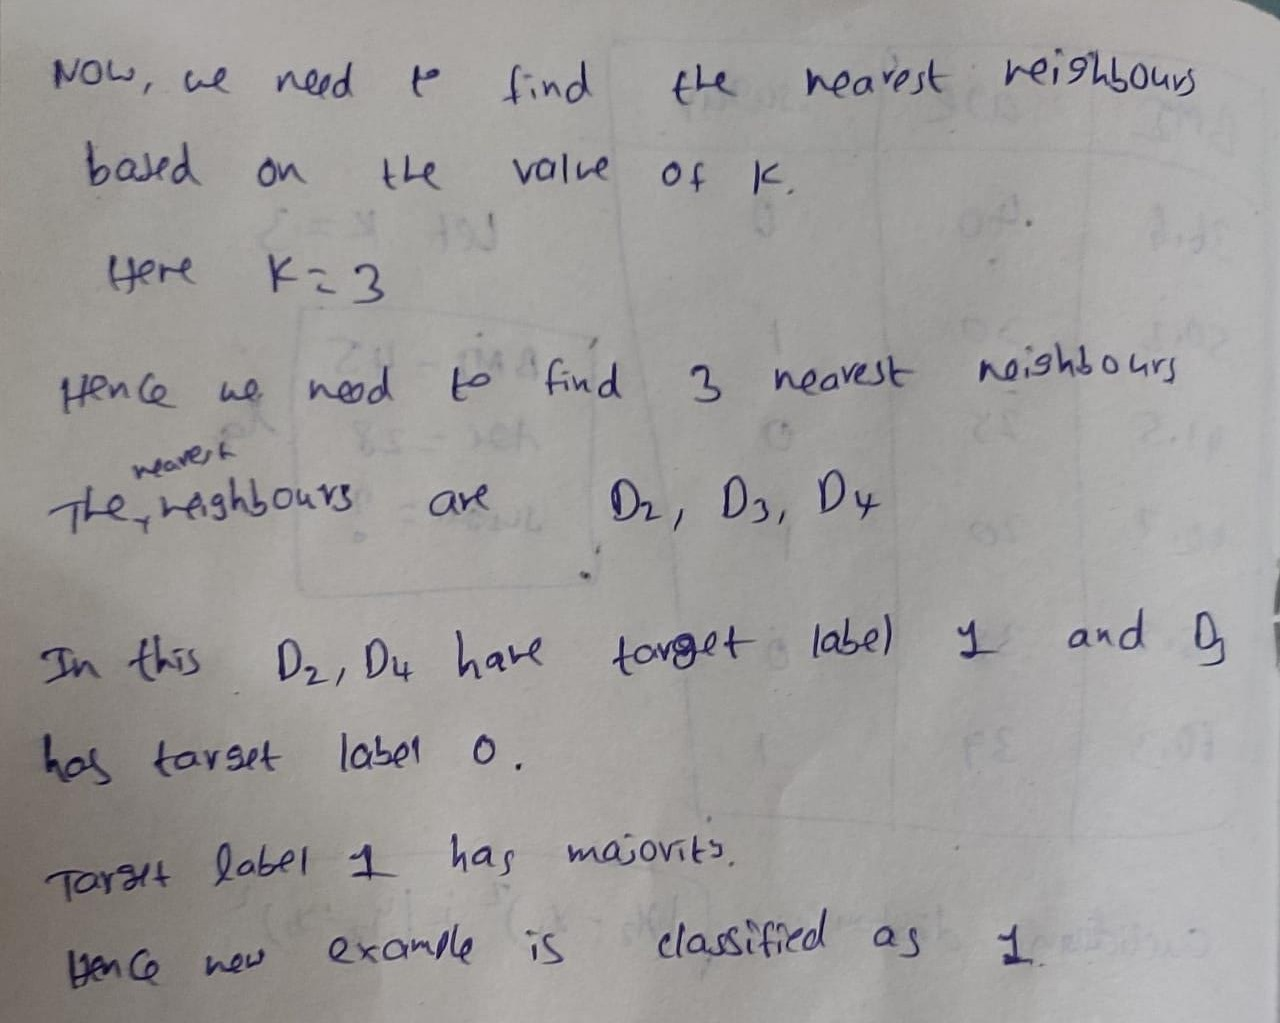 Now, we need to find the nearest neighbours
based on the value of K.
Here K = 3
Hence we need to find 3 nearest neighbours
The nearest neighbours are D2, D3, D4
In this D2, D4 have target label 1 and D3
has target label 0.
Target label 1 has majority.
Hence new example is classified as 1.